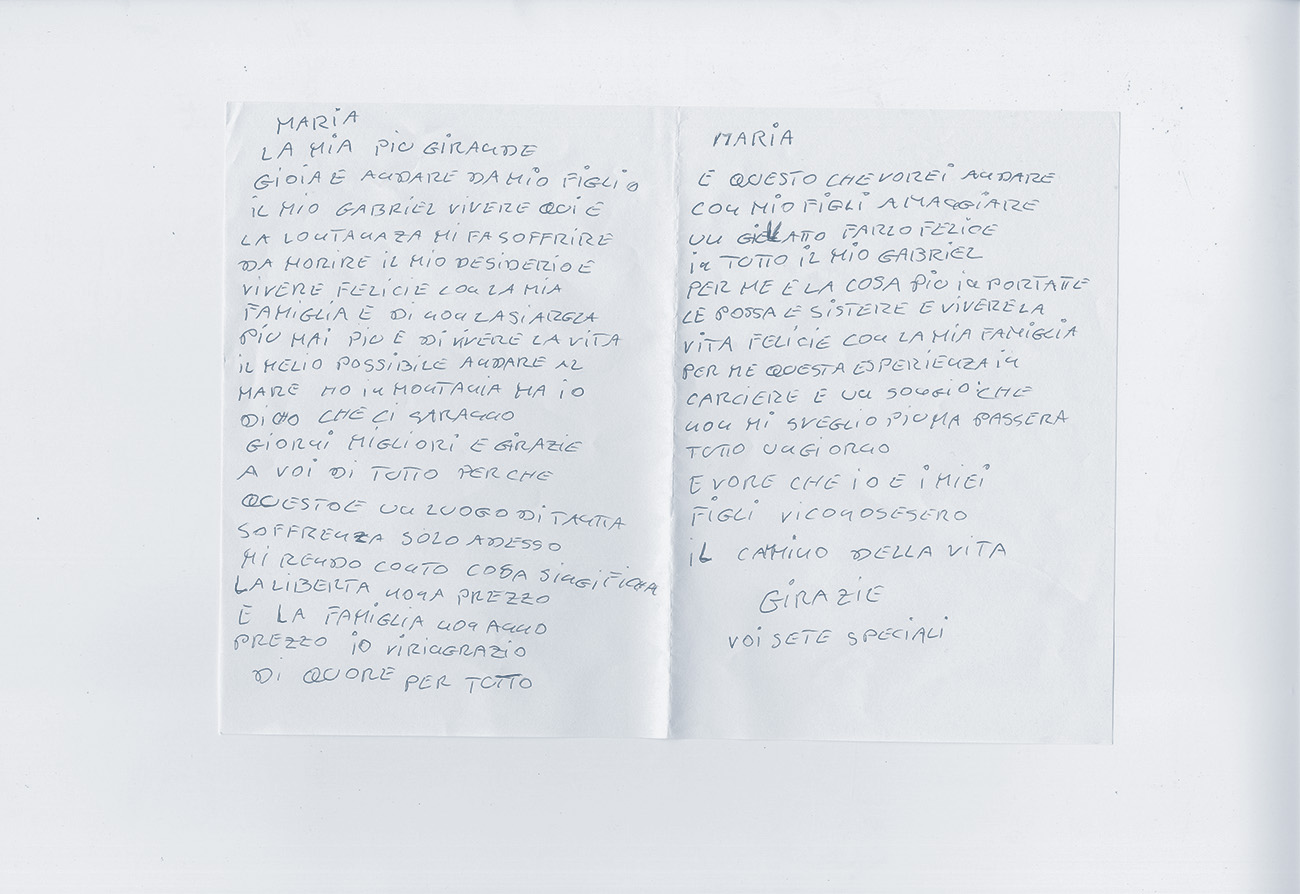 MARiA
LA MiA PiU GiRANDE
GiOiA E ANDARE DA MiO FiGLiO
iL MiO GABRiEL ViVERE QUi E
LA LONTANAZA Mi FA SOFFRiRE
DA MORiRE iL MiO DESiDERiO E
ViVERE FELiCiE CON LA MiA
FAMiGLiA E Di NON LASiARELA
PiU MAi PiU E Di ViVERE LA ViTA
iL MELiO POSSiBiLE ANDARE AL
MARE HO iN MONTANIA MA iO
DiCO CHE Ci SARANNO
GiORNi MiGLiORi E GiRAZiE
A VOi Di TUTTO PERCHE
QUESTO E UN LUOGO Di TANTA
SOFFRENZA SOLO ADESSO
Mi RENDO CONTO COSA SiNGiFiCHA
LA LiBERTA NONA PREZZO
E LA FAMiGLiA NON ANNO
PREZZO iO ViRiNGRAZiO
Di QUORE PER TUTTO
MARiA
E QUESTO CHE VOREi ANDARE
CON MiO FiGLi A MAGGiARE
UN GiLATTO FARLO FELiCE
iN TUTTO iL MiO GABRiEL
PER ME E LA COSA PiU iN PORTATTE
LE POSSA E SiSTERE E ViVERE LA
ViTA FELiCiE CON LA MiA FAMiGLiA
PER ME QUESTA ESPERiENZA iN
CARCiERE E UN SONGiO CHE
NON Mi SVEGLiO PiU MA PASSERA
TUTTO UN GiORNO
E VORE CHE iO E i MiEi
FiGLi ViCONOSESERO
iL CAMiNO DELLA ViTA
GiRAZiE
VOi SETE SPECiALi